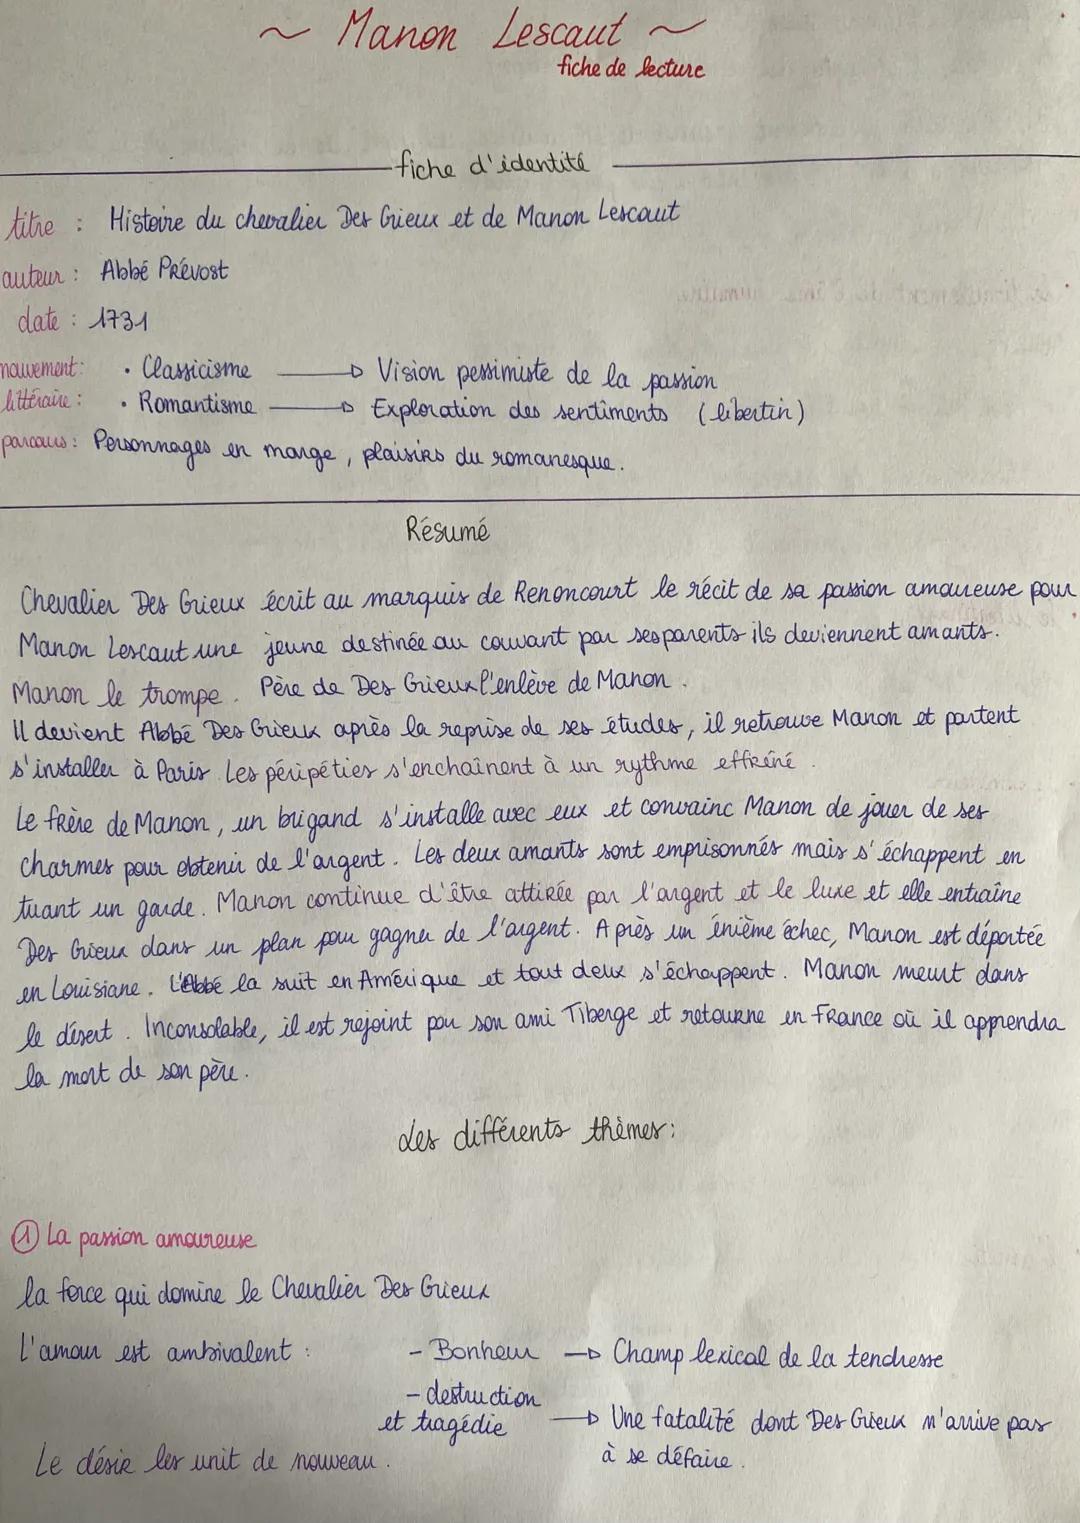 ~ Manon Lescaut ~
fiche de lecture
fiche d'identité
titre : Histoire du chevalier Des Grieux et de Manon Lescaut
auteur : Abbé Prévost
date : 1731
mouvement : • Classicisme → Vision pessimiste de la passion
littéraire : • Romantisme → Exploration des sentiments (libertin)
parcours : Personnages en marge, plaisirs du romanesque.
Résumé
Chevalier Des Grieux écrit au marquis de Renoncourt le récit de sa passion amoureuse pour
Manon Lescaut une jeune destinée au couvant par ses parents ils deviennent amants.
Manon le trompe. Père de Des Grieux l'enlève de Manon.
Il devient Abbé Des Grieux après la reprise de ses études, il retrouve Manon et partent
s'installer à Paris. Les péripéties s'enchaînent à un rythme effréné.
Le frère de Manon, un brigand s'installe avec eux et convainc Manon de jouer de ses
charmes pour obtenir de l'argent. Les deux amants sont emprisonnés mais s'échappent en
tuant un garde. Manon continue d'être attirée par l'argent et le luxe et elle entraîne
Des Grieux dans un plan pour gagner de l'argent. Après un énième échec, Manon est déportée
en Louisiane. L'Abbé la suit en Amérique et tout deux s'échappent. Manon meurt dans
le désert. Inconsolable, il est rejoint par son ami Tiberge et retourne en France où il apprendra
la mort de son père.
Les différents thèmes :
① La passion amoureuse
la force qui domine le Chevalier Des Grieux
L'amour est ambivalent : - Bonheur → Champ lexical de la tendresse
- destruction
et tragédie → Une fatalité dont Des Grieux n'arrive pas
à se défaire.
Le désir les unit de nouveau.